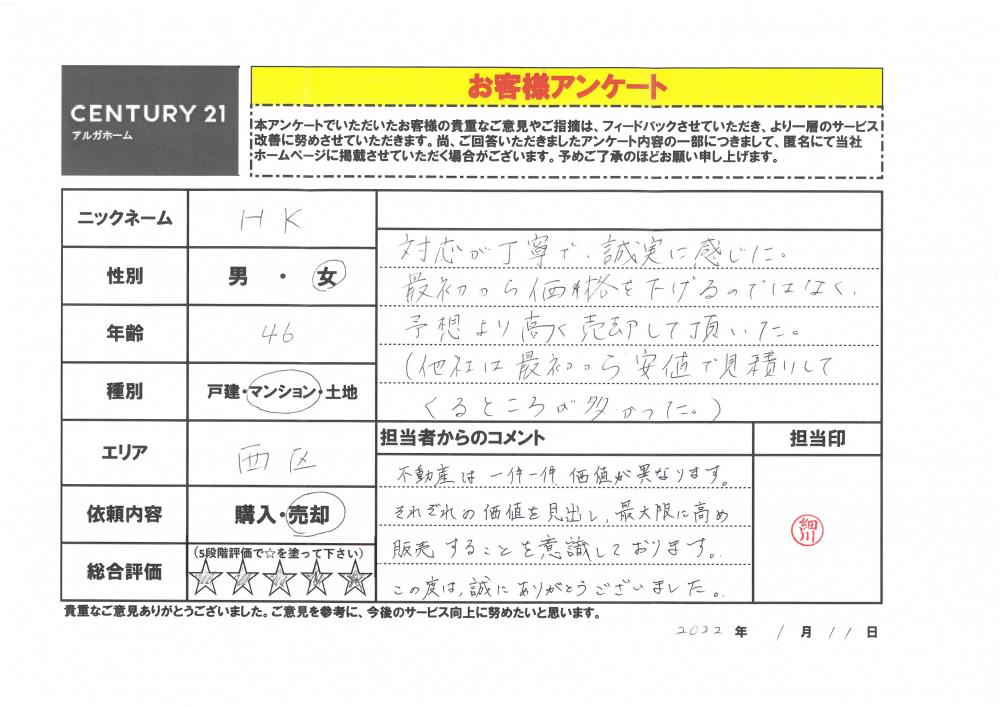 CENTURY 21
アルガホーム
お客様アンケート
本アンケートでいただいたお客様の貴重なご意見やご指摘は、フィードバックさせていただき、より一層のサービス
改善に努めさせていただきます。尚、ご回答いただきましたアンケート内容の一部につきまして、匿名にて当社
ホームページに掲載させていただく場合がございます。予めご了承のほどお願い申し上げます。
ニックネーム HK
性別 男・女
年齢 46
種別 戸建・マンション・土地
エリア 西区
依頼内容 購入・売却
総合評価 (5段階評価で☆を塗って下さい)
対応が丁寧で、誠実に感じた。
最初から価格を下げるのではなく、
予想より高く売却して頂いた。
(他社は最初から安値で見積りして
くるところが多かった。)
担当者からのコメント
不動産は一件一件価値が異なります。
それぞれの価値を見出し、最大限に高め
販売することを意識しております。
この度は、誠にありがとうございました。
担当印
細川
貴重なご意見ありがとうございました。ご意見を参考に、今後のサービス向上に努めたいと思います。
2022年 1月11日